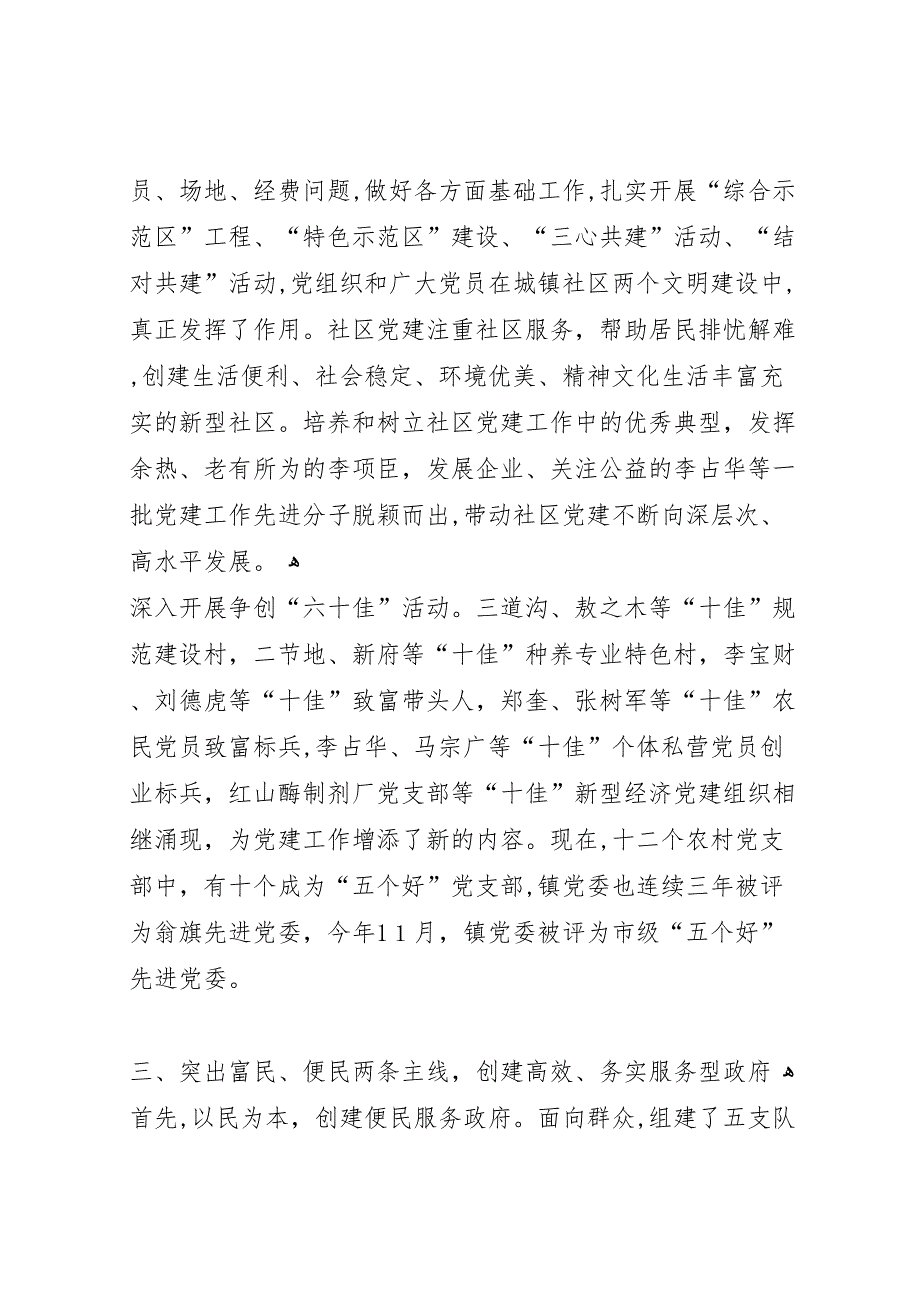 员、场地、经费问题,做好各方面基础工作,扎实开展“综合示
范区”工程、“特色示范区”建设、“三心共建”活动、“结
对共建”活动,党组织和广大党员在城镇社区两个文明建设中,
真正发挥了作用。社区党建注重社区服务，帮助居民排忧解难
,创建生活便利、社会稳定、环境优美、精神文化生活丰富充
实的新型社区。培养和树立社区党建工作中的优秀典型，发挥
余热、老有所为的李项臣，发展企业、关注公益的李占华等一
批党建工作先进分子脱颖而出,带动社区党建不断向深层次、
高水平发展。 ﻫ
深入开展争创“六十佳”活动。三道沟、敖之木等“十佳”规
范建设村，二节地、新府等“十佳”种养专业特色村，李宝财
、刘德虎等“十佳”致富带头人，郑奎、张树军等“十佳”农
民党员致富标兵,李占华、马宗广等“十佳”个体私营党员创
业标兵，红山酶制剂厂党支部等“十佳”新型经济党建组织相
继涌现，为党建工作增添了新的内容。现在,十二个农村党支
部中，有十个成为“五个好”党支部,镇党委也连续三年被评
为翁旗先进党委，今年1１月，镇党委被评为市级“五个好”
先进党委。
三、突出富民、便民两条主线，创建高效、务实服务型政府 ﻫ
首先,以民为本，创建便民服务政府。面向群众,组建了五支队